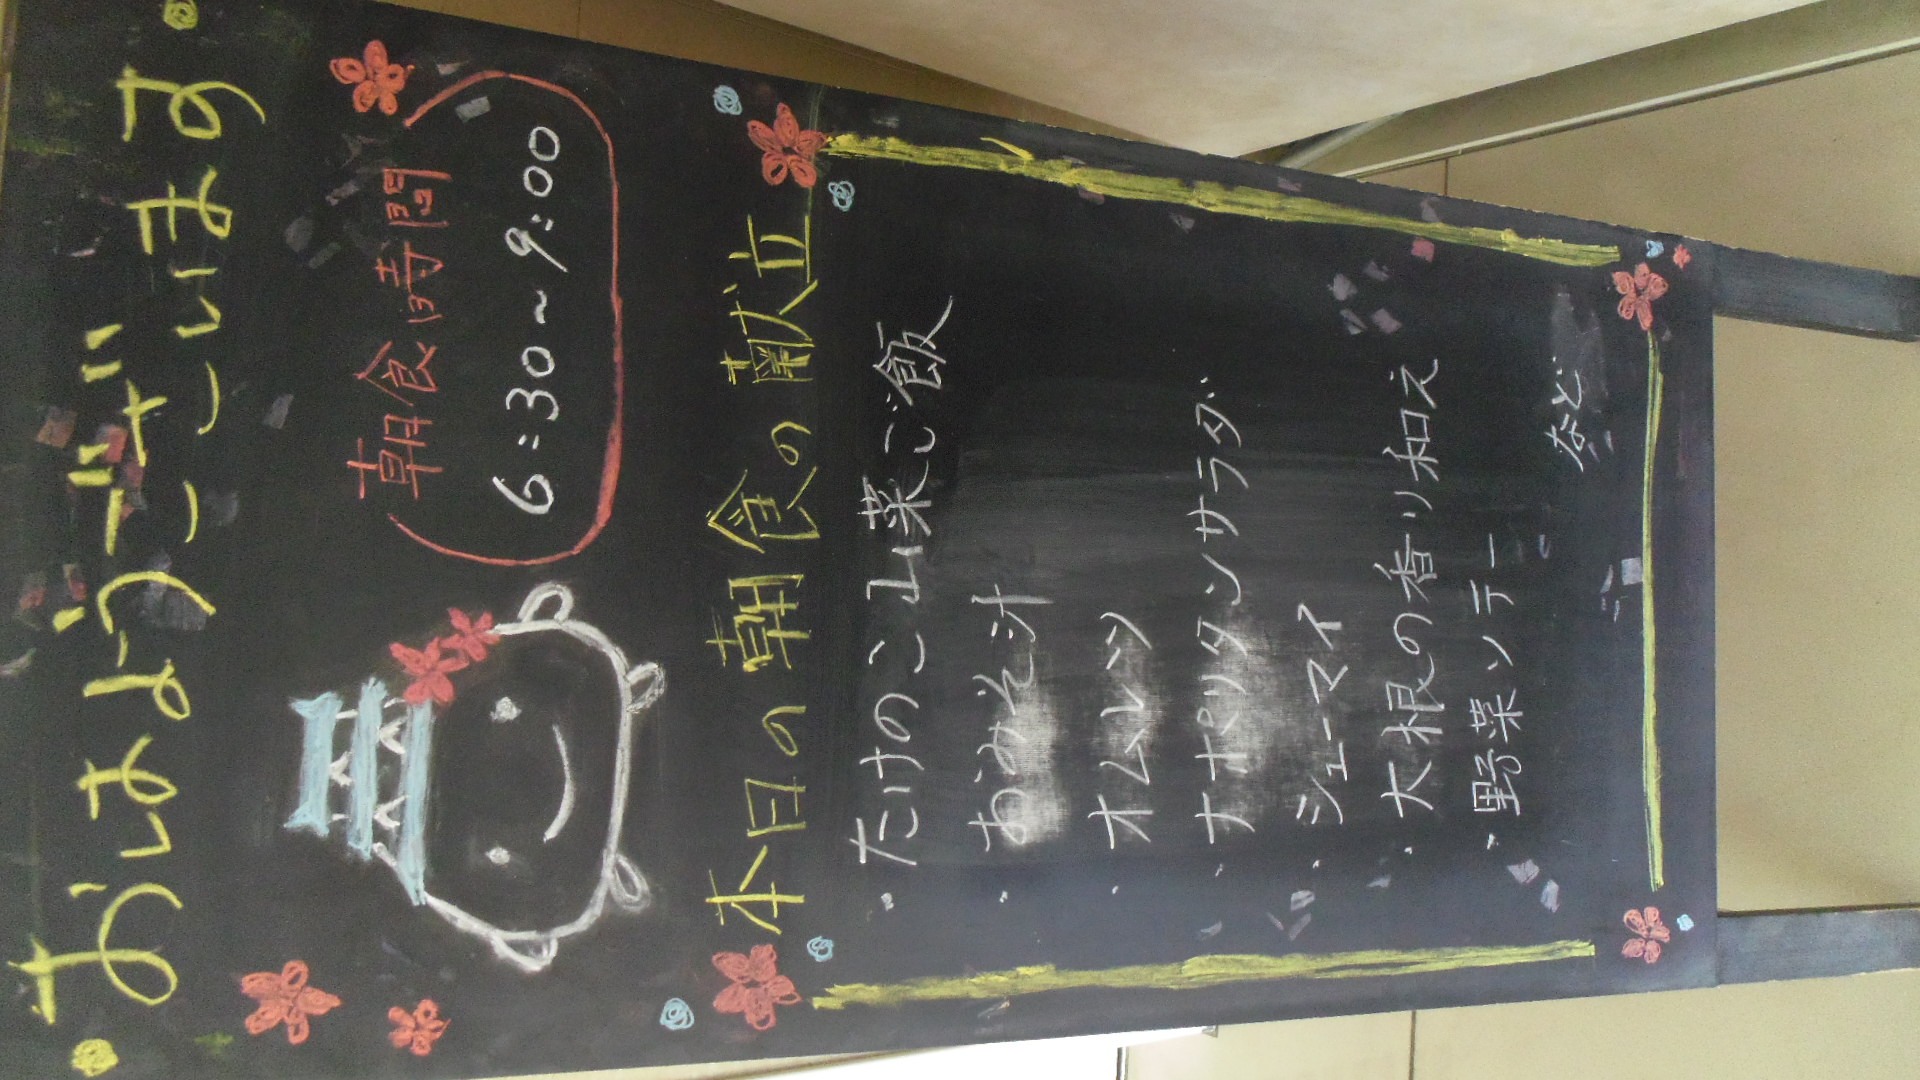 おはようございます
朝食時間
6:30~9:00
本日の朝食の献立
・たけのこ山菜ご飯
・おみそ汁
・オムレツ
・ナポリタンサラダ
・シューマイ
・大根の香り和え
・野菜ソテー
など